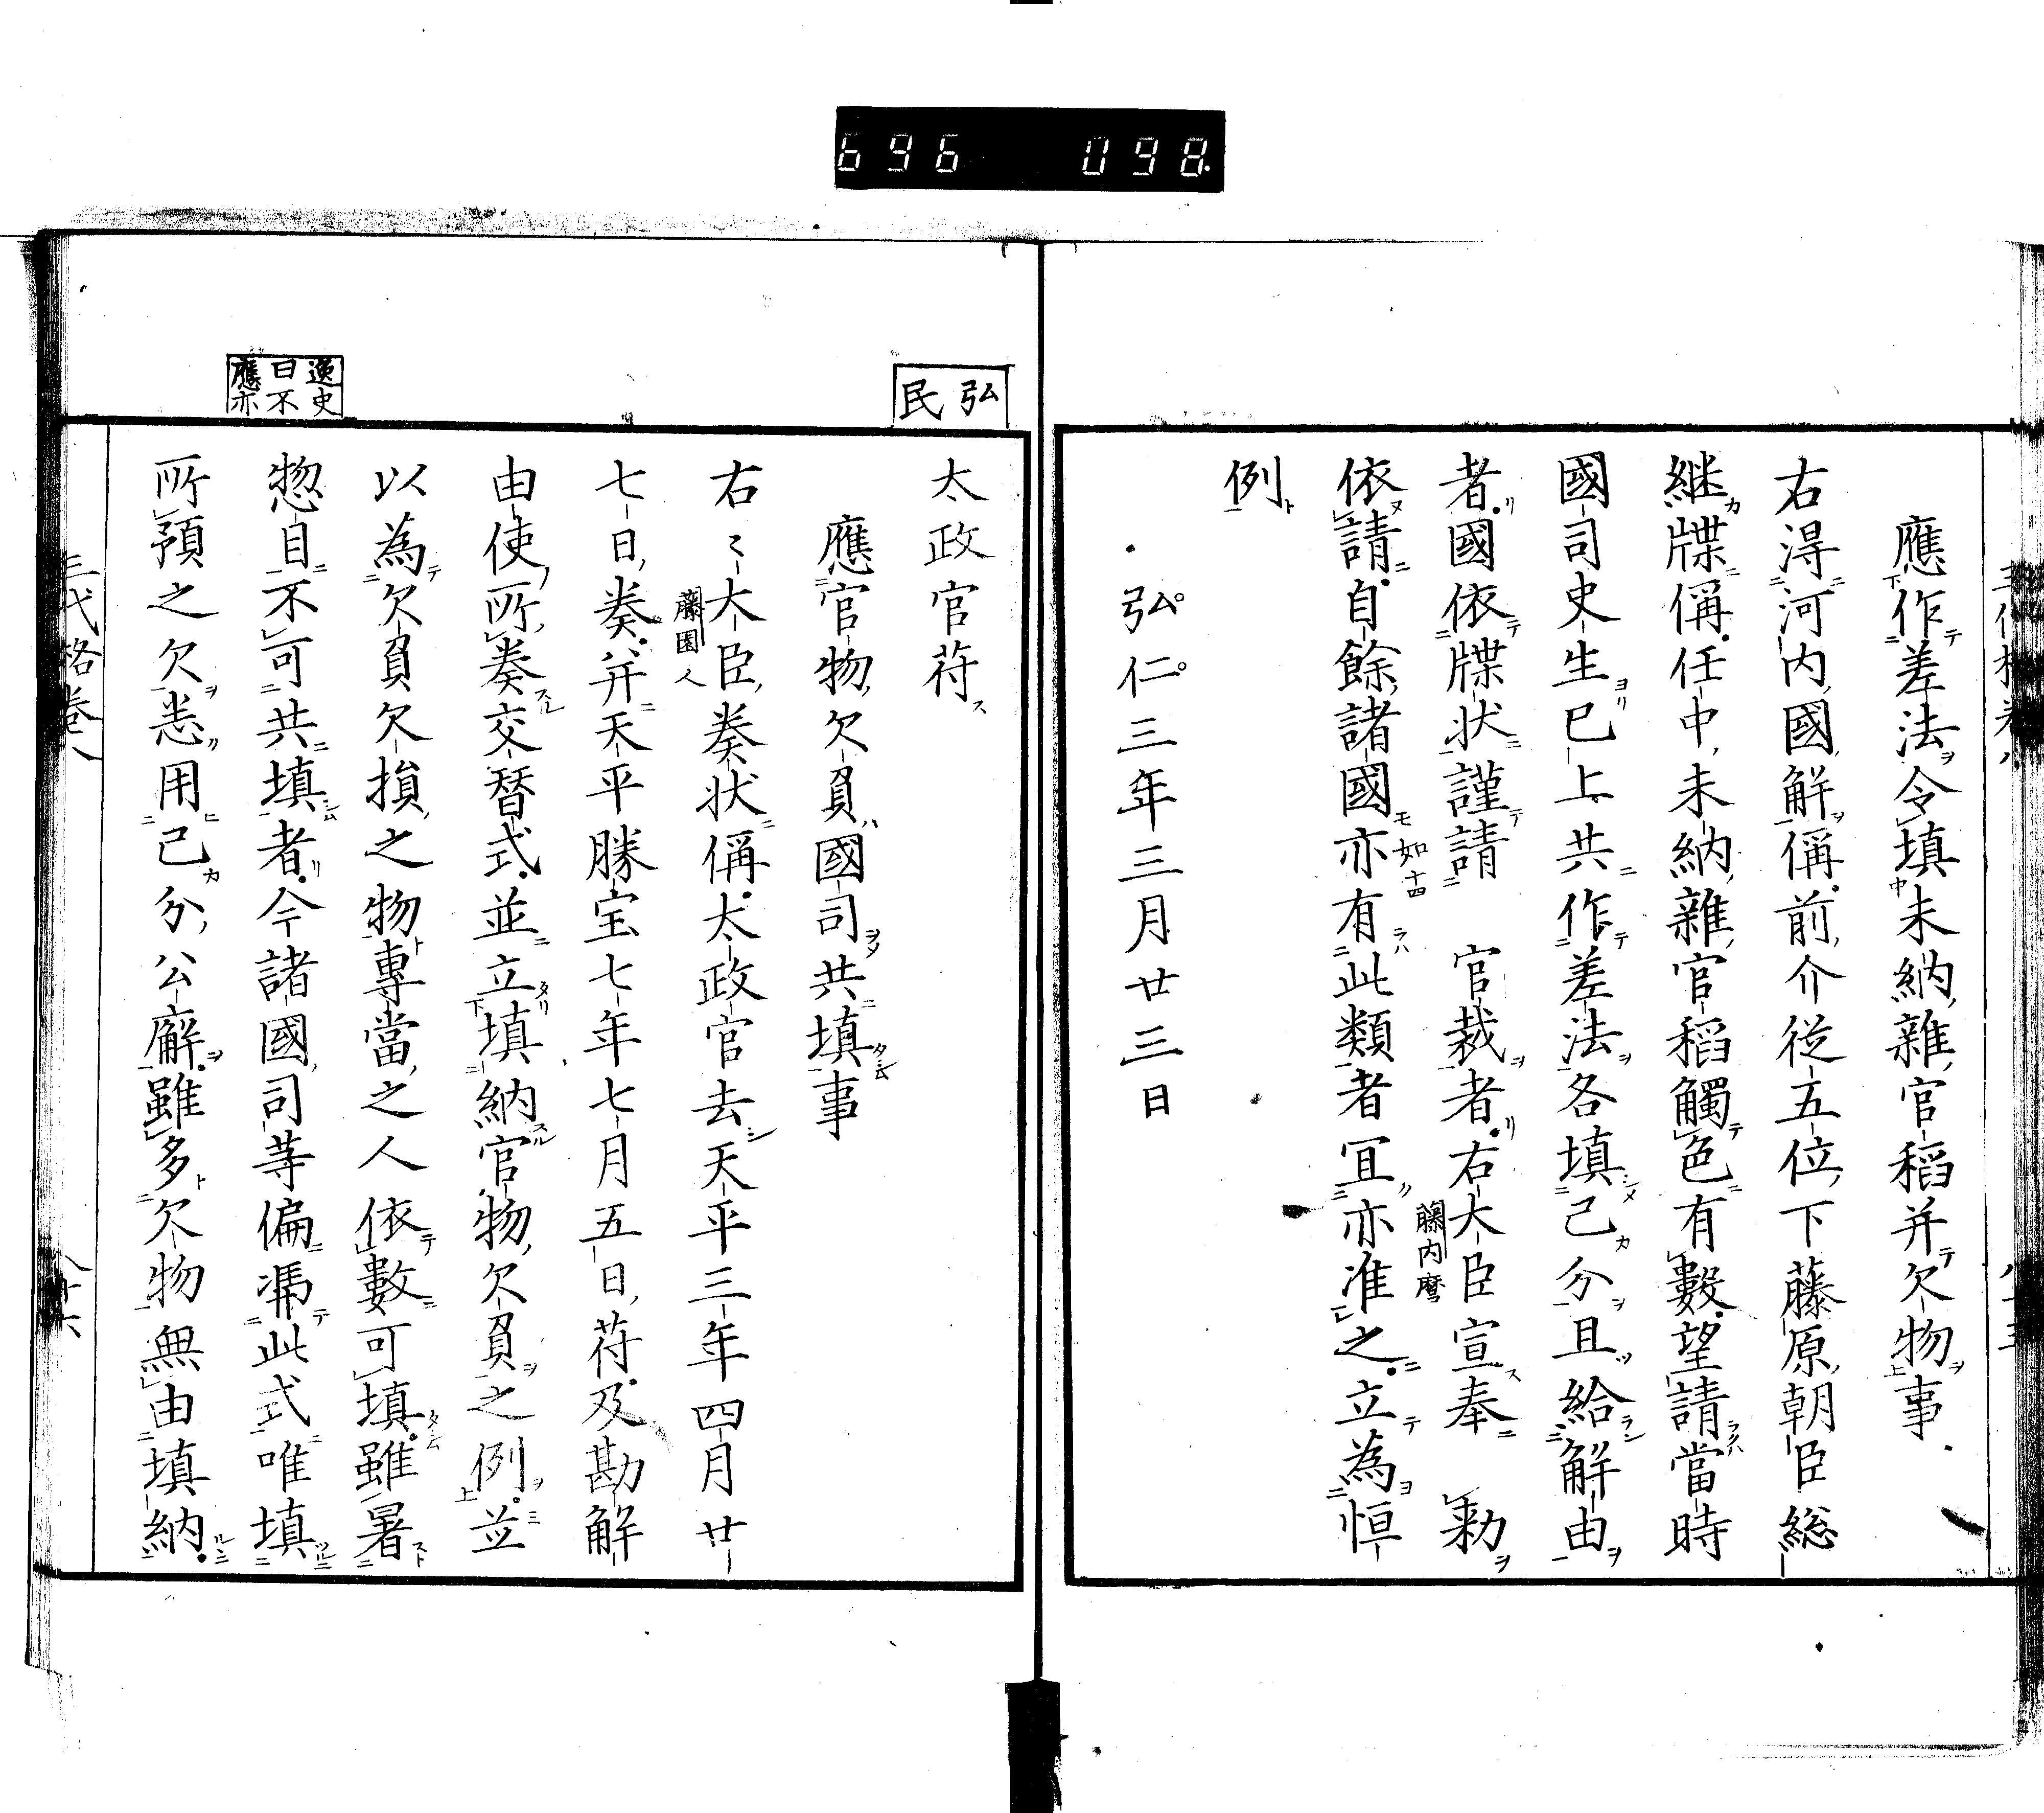 696 098
應作差法令填未納雜官稻并欠物事
右得河内國解偁前介從五位下藤原朝臣総
継牒偁任中未納雜官稻觸色有數望請當時
國司史生已上共作差法各填己分且給解由
者國依牒状謹請 官裁者右大臣宣奉 勅
藤内麿
依請自餘諸國亦有此類者冝亦准之立為恒
如十四
例
弘仁三年三月廿三日
弘民
太政官苻
應官物欠負國司共填事
右〻大臣奏状偁太政官去天平三年四月廿
藤園人
七日奏并天平勝宝七年七月五日苻及勘解
由使所奏交替式並立填納官物欠負之例並
以為欠負欠損之物專當之人依數可填雖署
惣目不可共填者今諸國司等偏馮此式唯填
逸史曰不應亦
所預之欠悉用己分公廨雖多欠物無由填納
三代格卷八 八十六